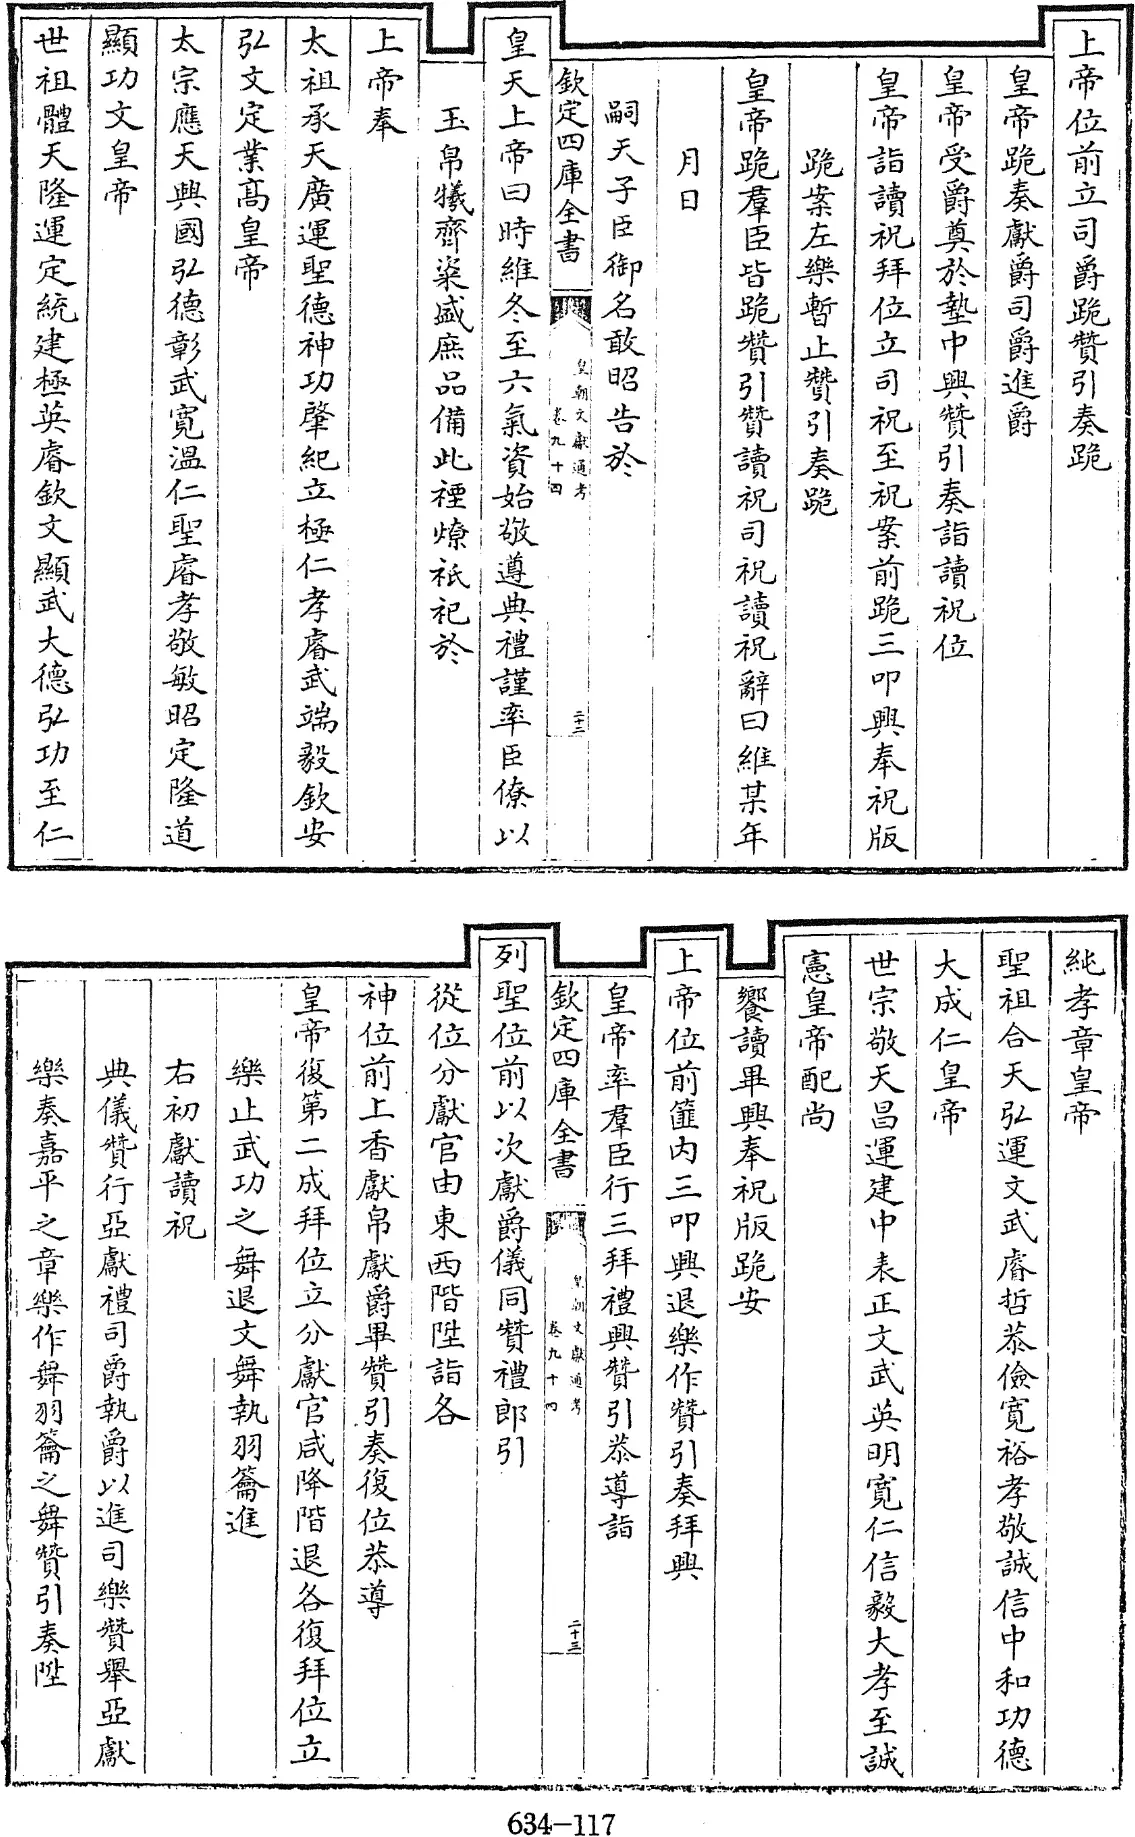 上帝位前立司爵跪贊引奏跪
皇帝跪奏獻爵司爵進爵
皇帝受爵奠於墊中興贊引奏詣讀祝位
皇帝詣讀祝拜位立司祝至祝案前跪三叩興奉祝版
跪案左樂暫止贊引奏跪
皇帝跪羣臣皆跪贊引贊讀祝司祝讀祝辭曰維某年
月日
嗣天子臣御名敢昭告於
欽定四庫全書
皇朝文獻通考
卷九十四
二十三
皇天上帝曰時維冬至六氣資始敬遵典禮謹率臣僚以
玉帛犧齊粢盛庶品備此禋燎祇祀於
上帝奉
太祖承天廣運聖德神功肇紀立極仁孝睿武端毅欽安
弘文定業髙皇帝
太宗應天興國弘德彰武寬溫仁聖睿孝敬敏昭定隆道
顯功文皇帝
世祖體天隆運定統建極英睿欽文顯武大德弘功至仁
純孝章皇帝
聖祖合天弘運文武睿哲恭儉寬裕孝敬誠信中和功德
大成仁皇帝
世宗敬天昌運建中表正文武英明寬仁信毅大孝至誠
憲皇帝配尚
饗讀畢興奉祝版跪安
上帝位前篚内三叩興退樂作贊引奏拜興
皇帝率羣臣行三拜禮興贊引恭導詣
欽定四庫全書
皇朝文獻通考
卷九十四
二十三
列聖位前以次獻爵儀同贊禮郎引
從位分獻官由東西階陞詣各
神位前上香獻帛獻爵畢贊引奏復位恭導
皇帝復第二成拜位立分獻官咸降階退各復拜位立
樂止武功之舞退文舞執羽籥進
右初獻讀祝
典儀贊行亞獻禮司爵執爵以進司樂贊舉亞獻
樂奏嘉平之章樂作舞羽籥之舞贊引奏陞
634-117